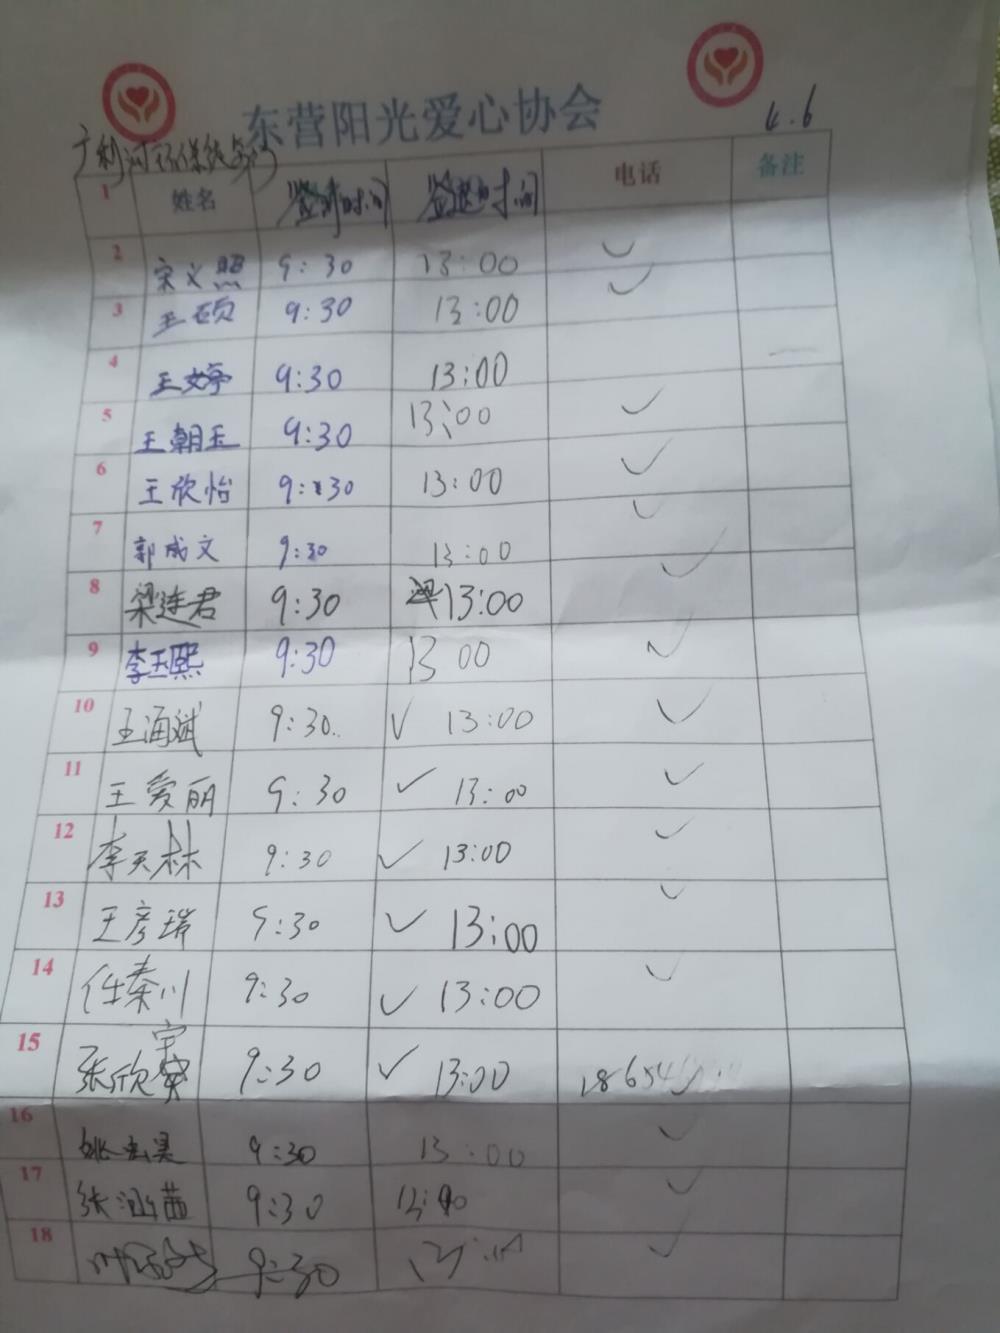 东营阳光爱心协会
4.6
广利河环保
1 姓名 签到时间 签退时间 电话 备注
2 宋义照 9:30 13:00 ✓
3 王硕 9:30 13:00 ✓
4 王婷 9:30 13:00
5 王朝玉 9:30 13:00 ✓
6 王欣怡 9:30 13:00 ✓
7 郭成文 9:30 13:00 ✓
8 梁连君 9:30 13:00 ✓
9 李玉熙 9:30 13 00 ✓
10 王海斌 9:30 ✓ 13:00 ✓
11 王爱丽 9:30 ✓ 13:00 ✓
12 李天林 9:30 ✓ 13:00 ✓
13 王彦瑞 9:30 ✓ 13:00 ✓
14 任秦川 9:30 ✓ 13:00 ✓
15 张欣宇 9:30 ✓ 13:00 18654
16 9:30 13:00 ✓
17 张涵茜 9:30 13:00 ✓
18 9:30 ✓